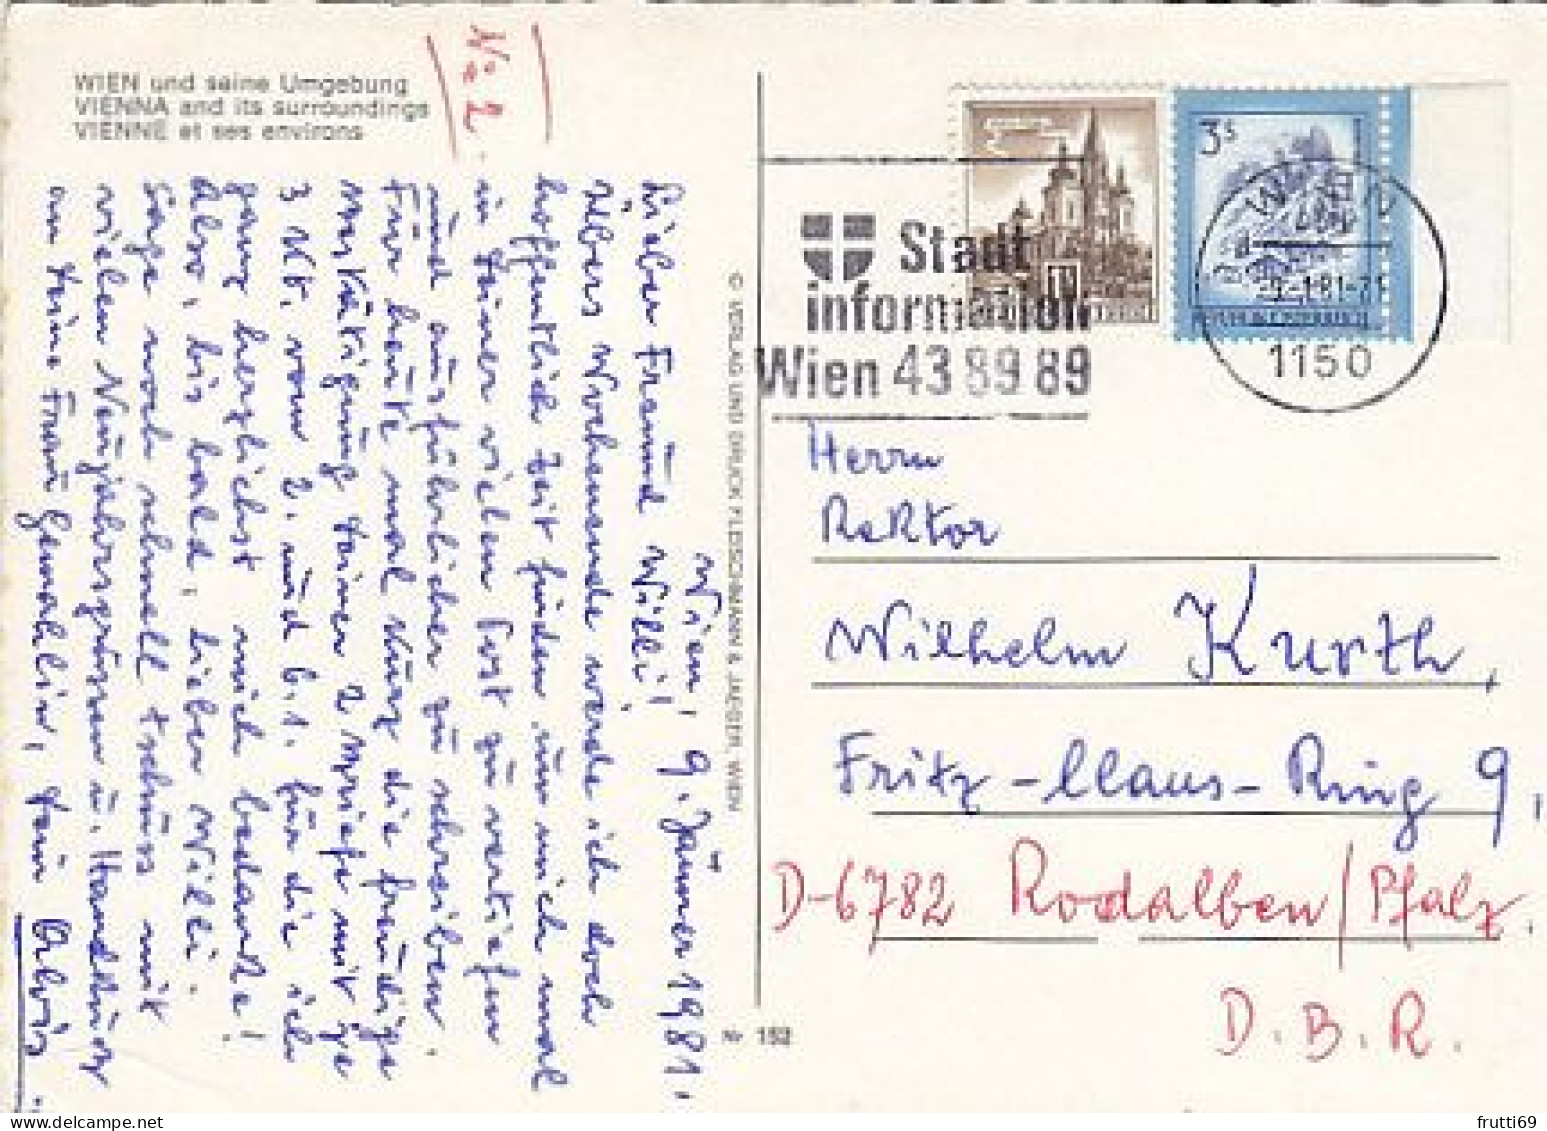 WIEN und seine Umgebung
VIENNA and its surroundings
VIENNE et ses environs
No 2.
Wien, 9. Jänner 1981.
Lieber Freund Willi!
Übers Wochenende werde ich doch
hoffentlich Zeit finden um mich mal
in Deiner vielen Post zu vertiefen
und ausführlicher zu schreiben.
Für heute mal kurz die freudige
Bestätigung Deiner 2 Briefe mit je
3 Kt. vom 2. und 6.1. für die ich
ganz herzlichst mich bedanke!
Also, bis bald, lieber Willi.
Sage noch schnell tschüss mit
vielen Neujahrsgrüssen u. Handkuss
an Deine Frau Gemahlin, Dein Alois.
© VERLAG UND DRUCK FLEISCHMANN & JAEGER, WIEN
Nr 152
Stadt
information
Wien 43 89 89
3 S
WIEN
-9.-1.81-21
1150
Herrn
Rektor
Wilhelm Kurth,
Fritz-Claus-Ring 9,
D-6782 Rodalben/Pfalz.
D.B.R.
frutti69